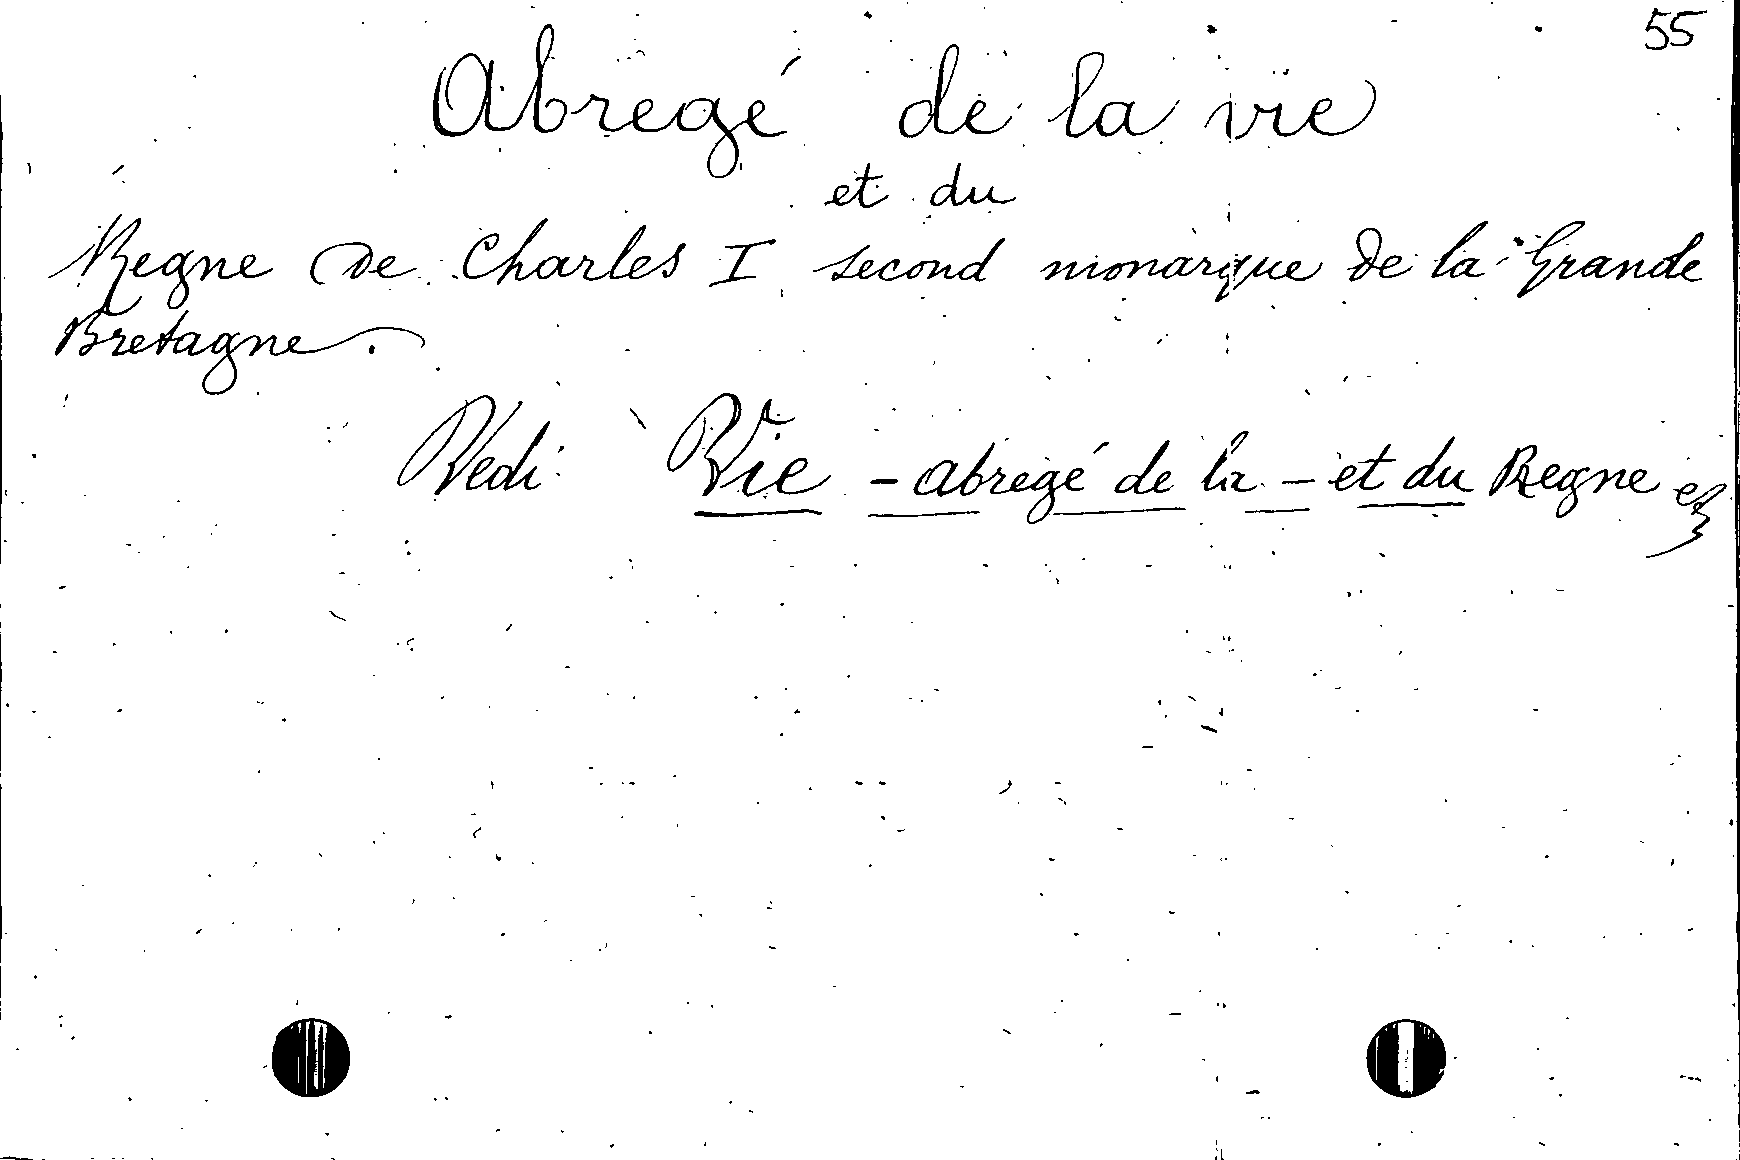 55
Abregé de la vie
et du
Regne de Charles I second monarque de la Grande
Bretagne.
Vedi Vie - abregé de la - et du Regne etc